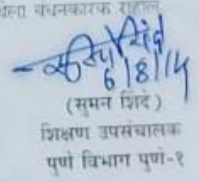 बंधनकारक राहील
6/8/14
(सुमन शिंदे)
शिक्षण उपसंचालक
पुणे विभाग पुणे-१